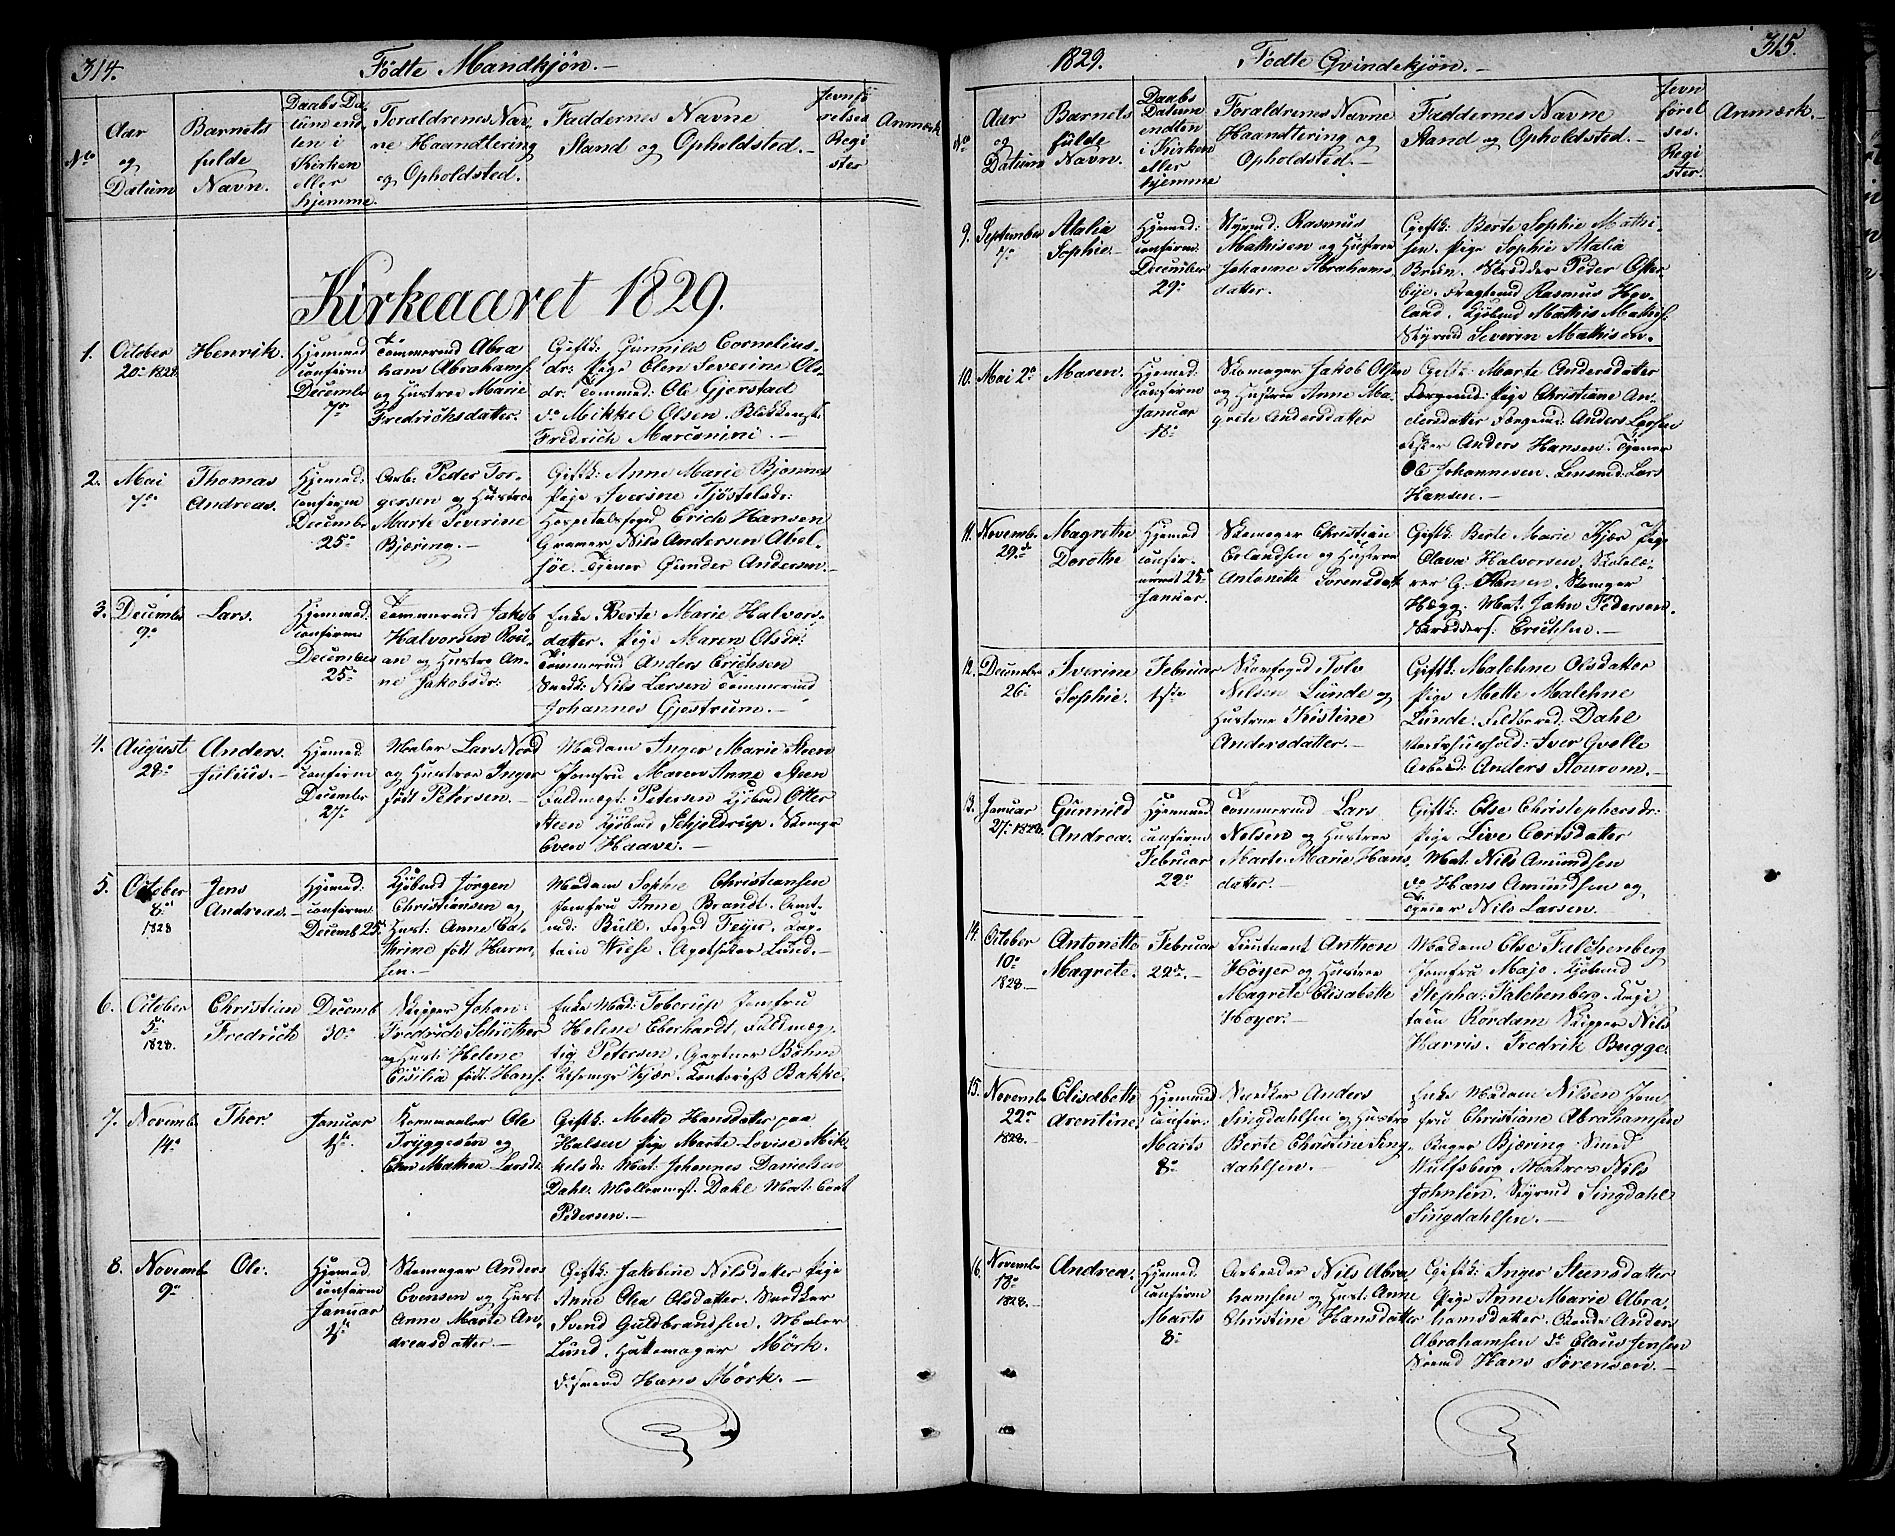 314.
Födte Mandkjön.
No
Aar
og
Datum
Barnets
fulde
Navn.
Daabs Da-
tum end-
ten i
Kirken
eller
hjemme.
Foraldrenes Nav-
ne Haandtering
og Opholdsted.
Faddernes Navne
Stand og Opholdsted.
Jevnfö
relses
Regi
ster
Anmærk
Kirkeaaret 1829.
1.
October
20de 1828.
Henrik.
Hjemmed
confirm
December
7de
Tømmermd Abra
hams Abrahams:
og Hustroe Marie
Fredrichsdatter.
Giftk: Gunnild Cornelius-
dr: Pige Elen Severine Ols-
dr: Tømmermd: Ole Gjerstad
do Mikkel Olsen. Blikkensl:
Fredrich Marconini.
2.
Mai
7de
Thomas
Andreas.
Hjemmed:
confirm
December
25de
Arb: Peder Tor-
gersen og Hustroe
Marte Severine
Bjæring.
Giftk: Anne Marie Bjønnes
Pige Iverine Tjöstelsdr:
Hospitalsfogd Erich Hansen
Gramer, Nils Andersen Abel-
söe. Tjener Gunder Andersen.
3.
Decembr
9de
Lars.
Hjemmed:
confirm
December
25de
Tømmermd Jakob
Halvorsen Rou-
an og Hustroe An-
ne Jakobsdr:
Enke Berte Marie Halvors-
datter. Pige Maren Olsdr:
Tømmermd Anders Erichsen
Snedk: Nils Larsen Tømmermd
Johannes Gjestrum.
4.
August
28de
Anders
Julius.
Hjemmed
confirm
December
27de
Maler Lars Nord
og Hustroe Inger
födt Petersen.
Madam Inger Marie Steen
Jomfru Maren Anne Steen
Fuldmægt: Petersen Kjöbmd Otter
Steen Kjöbmd Schjoldrup. Skomgr
Even Haave.
5.
October
8de
1828
Jens
Andreas.
Hjemmed:
confirm
Decemb 25de
Kjöbmd Jörgen
Christiansen og
Hust: Anne Ca-
thrine födt Harm
sen.
Madam Sophie Christiansen
Jomfru Anne Brandt. Amt-
md: Bull. Foged Feyer. Cap-
tain Wiese. Apotheker Lund.
6.
October
5de
1828.
Christian
Fredrich
Decemb
30de
Skipper Johan
Fredrich Schötker
og Hust: Helene
Cisilia födt: Hans:
Enke Mad: Toborup Jomfru
Helene Eberhardt Fuldmæg-
tig Petersen. Gartner Böhm
Uhrmgr Kjær. Kontorist Bakke.
7.
Novemb
14de
Thor.
Januar
1ste
Kornmaaler Ole
Tryggesen og
Elen Mathea Larsdr
Giftk: Mette Hansdatter paa
Halsen Pige Marte Lovise Mik-
kelsdr: Mat: Johannes Danielsen
Dahl. Møllermest: Dahl Mat: Cort
Pedersen.
8.
Novemb
9de
Ole.
Hjemmed
confirm
Januar
1ste
Skomager Anders
Evensen og Hust
Anne Marte An-
dreasdatter.
Giftk: Jakobine Nilsdatter Pige
Anne Olea Olsdatter. Snedker
Svend Guldbrandsen. Maler
Lund. Hattemager Mörk.
Hans Mörk.
1829.
Födte Qvindekjön.
315.
No
Aar
og
Datum
Barnets
fulde
Navn.
Daabs
Datum
endten
i Kirken
eller
hjemme
Foraldrenes Navne
Haandtering og
Opholdsted.
Faddernes Navne
Stand og Opholdsted.
Jevn
förel
ses.
Regi
ster.
Anmærk.
9.
September
7de
Atalia
Sophie.
Hjemmed:
confirm
December
29de
Styrmd: Rasmus
Mathisen og Hustroe
Johanne Abrahams
datter.
Giftk: Berte Sophie Mathi-
sen. Pige Sophie Atalia
Bruun. Skrædder Peder Öster
bye. Fragtemd Rasmus Hav-
land. Kjöbmd Mathis Mathis:
Styrmd Severin Mathisen.
10.
Mai 2de
Maren.
Hjemmed:
confirm
Januar
18de
Skomager Jakob Olsen
og Hustroe Anne Ma-
grete Andersdatter
Giftk: Marte Andersdatter
Pige Christiane An-
dersdatter Anders Larsen
Anders Hansen. Tjener
Ole Johannesen. Lars
Hansen.
11.
Novemb.
29de
Magrethe
Dorothe
Hjemmed
confir-
meret 25de
Januar.
Skomager Christian
Erlandsen og Hustroe
Antonette Sörensdat.
Giftk: Berte Marie Kjær Pige
Olava Halvorsen, Skolelæ-
rer G. Hansen. Skomger
Hægg. Mat: John Pedersen.
Skrædders: Erichsen.
12.
Decembr
26de
Iverine
Sophie.
Februar
1ste
Skovfoged Tolv
Nilsen Lünde og
Hustroe Kistine
Andersdatter.
Giftk: Malehne Olsdatter
Pige Mette Malehne
Lünde. Feldbered: Dahl
Iver Qvelle
Arbeid: Anders Stourom.
13.
Januar
27de 1828.
Gunnild
Andrea.
Hjemmed
confirm
Februar
22de
Tømmermd Lars
Nilsen og Hustroe
Marte Marie Hans-
datter.
Giftk: Else Christophersdr:
Pige Live Cortsdatter
Mat: Nils Amundsen
do Hans Amundsen og
Tjener Nils Larsen.
14.
October
10de
1828.
Antonette
Magrete.
Februar
22de
Lieutnant Anthon
Höyer og Hustroe
Magrete Elisabette
Höyer.
Madam Else Falchenberg
Jomfru Majo. Kjöbmd
Stepha: Falchenberg. Kapi
tain Rördam Skipper Nils
Harris. Fredrik Bugge.
15.
Novembr
22de
1828.
Elisabette
Arentine.
Hjemmed
confir:
Marts
8de
Snedker Anders
Singdahlsen og Hustroe
Berte Christine Sing
dahlsen.
Enke Madam Nilsen Jom
fru Christiane Abrahamsen
Bager Bjæring. Smed
Wulfsberg Matros Nils
Johnsen. Styrmd Singdahl
Singdahlsen.
16.
Novembr
18de
1828.
Andrea.
Hjemmed.
confirm
Marts
8de
Arbeider Nils Abra
hamsen og Hust: Anne
Christine Hansdatter
Giftk: Inger Steensdatter
Pige Anne Marie Abra
hamsdatter. Bonde Anders
Abrahamsen do Claus Jensen
Hans Sörensen.